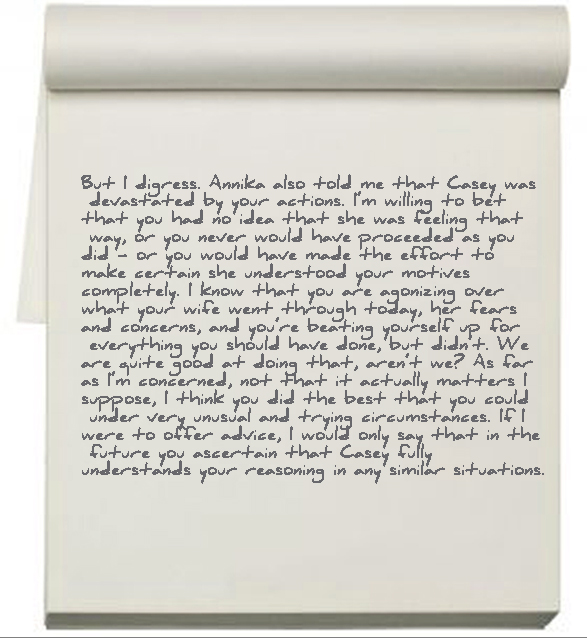 But I digress. Annika also told me that Casey was
devastated by your actions. I'm willing to bet
that you had no idea that she was feeling that
way, or you never would have proceeded as you
did - or you would have made the effort to
make certain she understood your motives
completely. I know that you are agonizing over
what your wife went through today, her fears
and concerns, and you're beating yourself up for
everything you should have done, but didn't. We
are quite good at doing that, aren't we? As far
as I'm concerned, not that it actually matters I
suppose, I think you did the best that you could
under very unusual and trying circumstances. If I
were to offer advice, I would only say that in the
future you ascertain that Casey fully
understands your reasoning in any similar situations.